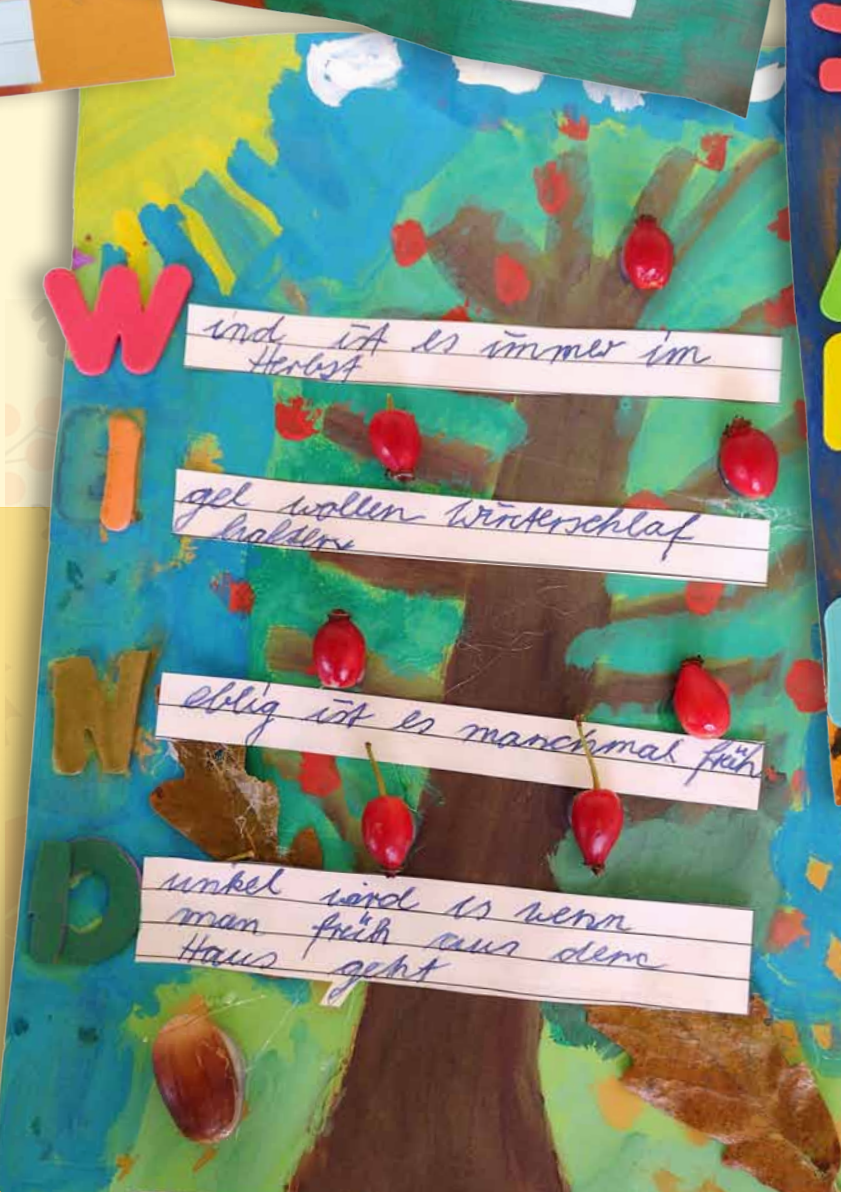 Wind ist es immer im
Herbst
Igel wollen Winterschlaf
halten
Neblig ist es manchmal früh
Dunkel wird es wenn
man früh aus dem
Haus geht